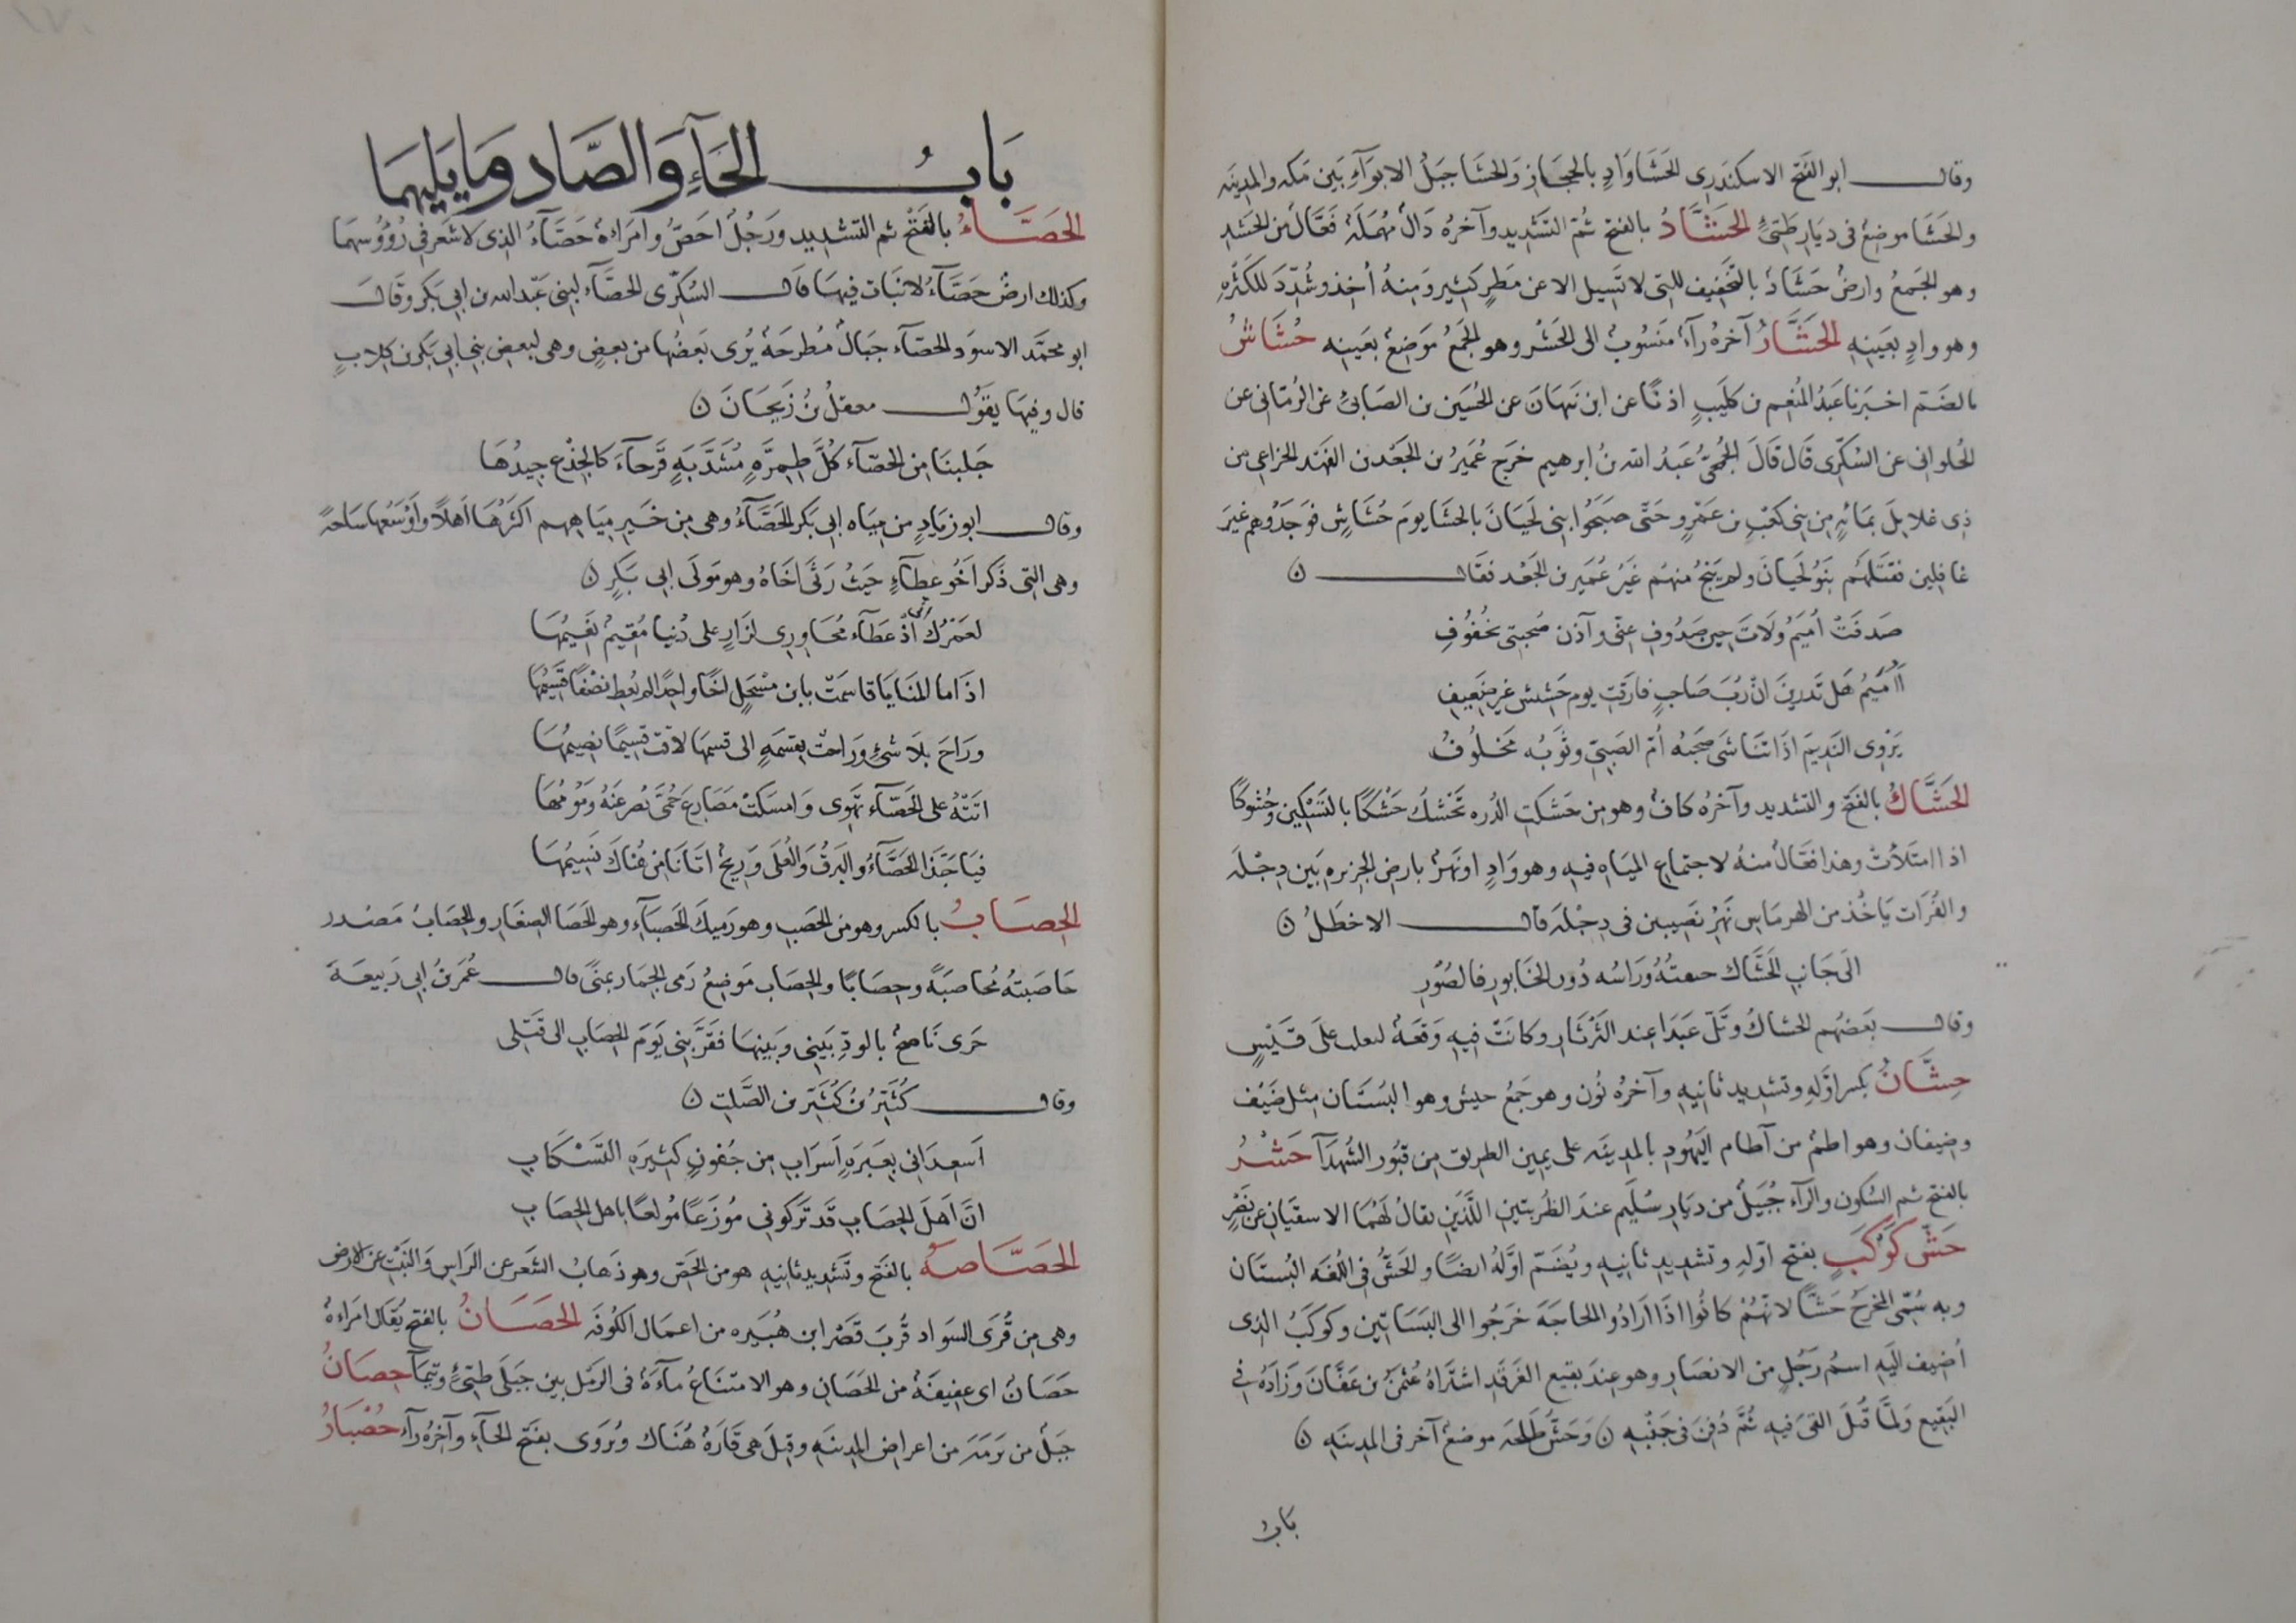 وقال ابو الفتح الاسكندرى الحَشَا وَادٍ بالحجاز والحشا جبل الابوآء بين مكه والمدينه
والحشا موضع فى ديار طيّئ الحَشَّادُ بالفتح ثم التشديد وآخره دال مهملة فعّال من الحشد
وهو الجمع وارض حشاد بالتخفيف للتى لا تسيل الا عن مطر كثير ومنه أخذ وشدّد للكثره
وهو وادٍ بعينه الحَشَّارُ آخره رآء منسوب الى الحشر وهو الجمع موضع بعينه حُشَاشُ
بالضم اخبرنا عبد المنعم بن كليب اذنا عن ابن نبهان عن الحسين بن الصابئ عن الرمانى عن
الحلوانى عن السكّرى قال قال الجمحىّ عبد الله بن ابرهيم خرج عمير بن الجعد بن القهد الخزاعى من
ذى غلايل بمائه من بنى كعب بن عمرو حتى صبحوا بنى لحيان بالحشا يوم حشاش فوجدوهم غير
غافلين فقتلهم بنو لحيان ولم ينج منهم غير عمير بن الجعد فقال ن
صدفت أميم ولات حين صدوف عنى وآذن صحبتى بخفوف
أأميم هل تدرين ان رب صاحب فارقت يوم حشش غير ضعيف
يروى النديم اذا تناشى صحبه أم الصبى وثوبه مخلوف
الحَشَّاكُ بالفتح والتشديد وآخره كاف وهو من حشكت الدره تحشك حشكا بالتسكين وحشوكا
اذا امتلأت وهذا فعّال منه لاجتماع المياه فيه وهو واد او نهر بارض الجزيره بين دجله
والفرات ياخذ من الهرماس نهر نصيبين فى دجله قال الاخطل ن
الى جانب الحشاك جيفته وراسه دون الخابور فالصور
وقال بعضهم الحشاك وتل عبدا عند الثرثار وكانت فيه وقعة لتغلب على قيس
حِشَّانُ بكسر اوله وتشديد ثانيه وآخره نون وهو جمع حيش وهو البستان مثل ضيف
وضيفان وهو اطم من آطام اليهود بالمدينه على يمين الطريق من قبور الشهدآ حَشْرُ
بالفتح ثم السكون والرآء جبيل من ديار سليم عند الظربتين اللذين يقال لهما الاسقيان عن نصر
حَشُّ كَوْكَبٍ بفتح اوله وتشديد ثانيه ويضم اوله ايضا والحش فى اللغه البستان
وبه سمّى المخرج حشا لانهم كانوا اذا ارادوا الحاجة خرجوا الى البساتين وكوكب الذى
أضيف اليه اسم رجل من الانصار وهو عند بقيع الغرقد اشتراه عثمن بن عفان وزاده فى
البقيع ولما قتل القى فيه ثم دفن فى جنبه ن وحش طلحه موضع آخر فى المدينه ن
باب
بَابُ الحَآءِ وَالصَّاد وَمَا يَلِيهِمَا
الحَصَّاءُ بالفتح ثم التشديد ورجل احص وامراة حصاء الذى لا شعر فى رؤوسهما
وكذلك ارض حصّآء لا نبات فيها قال السكّرى الحصّآء لبنى عبد الله بن ابى بكر وقال
ابو محمد الاسود الحصّآء جبال مطرحة يرى بعضها من بعض وهى لبعض بنى ابى بكر بن كلاب
قال وفيها يقول معقل بن زيحان ن
جلبنا من الحصّآء كل طمرّه مشذّبه قرحآء كالجذع جيدها
وقال ابو زياد من مياه ابى بكر الحصّآء وهى من خير مياههم اكثرها اهلا واوسعها ساحة
وهى التى ذكر اخو عطآء حيث رثى اخاه وهو مولى ابى بكر ن
لعمرك انّى اذ عطآء مجاورى لزار على دنيا مقيم نعيمها
اذا ما المنايا قاسمت بابن مسحل اخا واحدا لم يعط نصفا قسيمها
وراح بلا شئ وراحت بقسمه الى قسمها لاقت قسيما يضيمها
اتته على الحصّآء تهوى وامسكت مصارع حمى تصرعنه ومومها
فيا حبذا الحصّآء والبرق والعلى وريح اتانا من هناك نسيمها
الحِصَابُ بالكسر وهو من الحصب وهو رميك الحصبآء وهو الحصا الصغار والحصاب مصدر
حاصبته محاصبة وحصابا والحصاب موضع رمى الجمار بمنى قال عمر بن ابى ربيعة
جرى ناصح بالود بينى وبينها فقربنى يوم الحصاب الى قتلى
وقال كثيّر بن كثيّر بن الصلت ن
اسعدانى بعبره اسراب من جفون كثيره التسكاب
ان اهل الحصاب قد تركونى موزعا مولعا باهل الحصاب
الحَصَّاصَهُ بالفتح وتشديد ثانيه هو من الحص وهو ذهاب الشعر عن الراس والنبت عن الارض
وهى من قرى السواد قرب قصر ابن هبيره من اعمال الكوفه الحَصَانُ بالفتح يقال امراة
حصان اى عفيفة من الحصان وهو الامتناع مآءة فى الرمل بين جبلى طيّئ وتيمآ حِصَانُ
جبل من برمه من اعراض المدينه وقيل هى قارة هناك ويروى بفتح الحآء وآخره رآء حُصْبَارُ